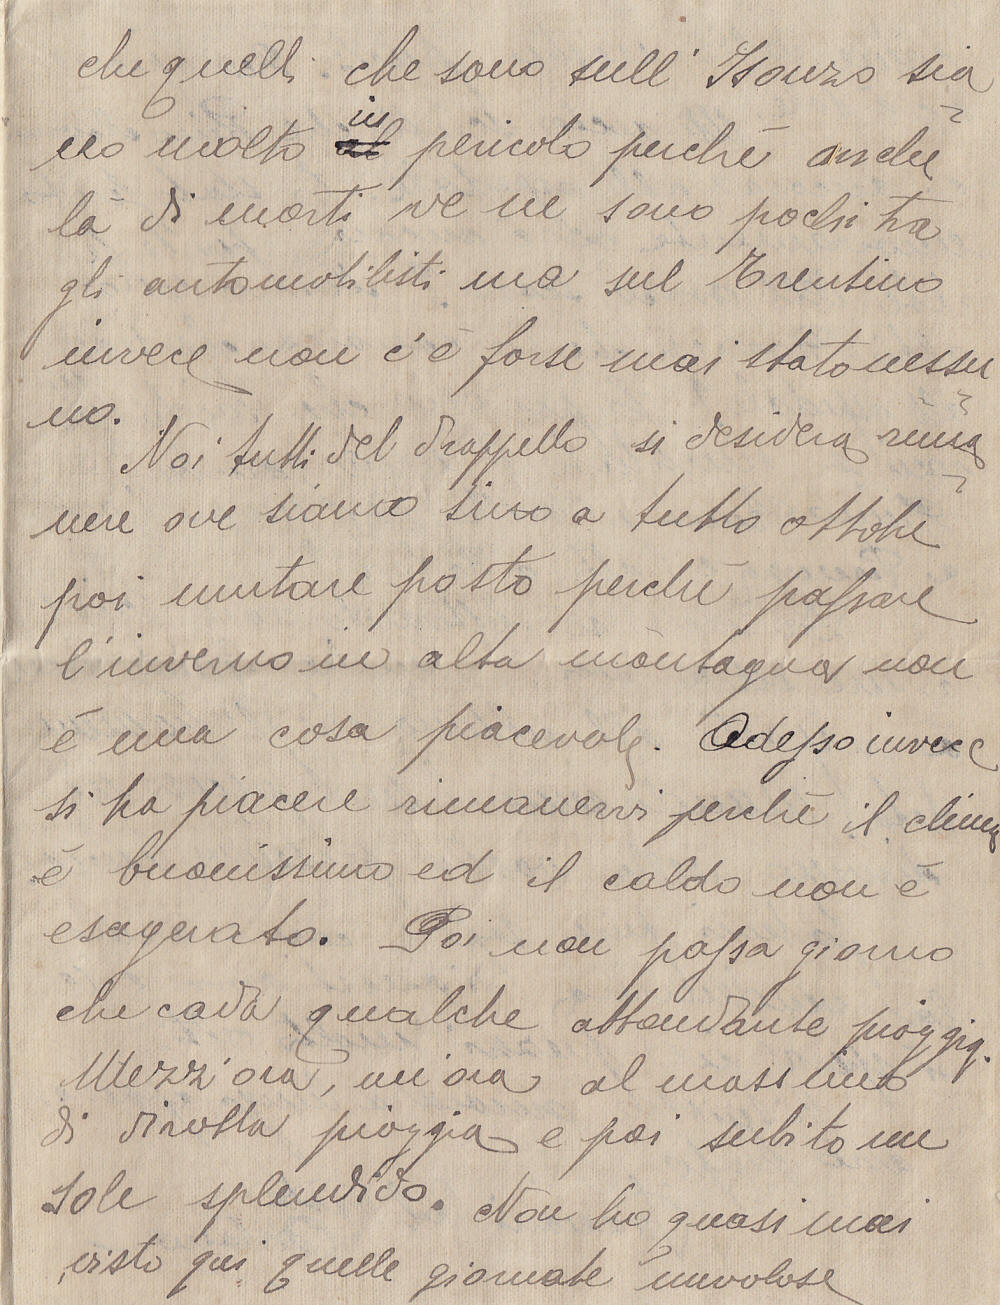 che quelli che sono sull' Isonzo sia
no molto in pericolo perchè anche
là di morti ve ne sono pochi tra
gli automobilisti ma sul Trentino
invece non c'è forse mai stato nessu
no.
Noi tutti del drappello si desidera rima
nere ove siamo sino a tutto ottobre
poi mutare posto perchè passare
l'inverno in alta montagna non
è una cosa piacevole. Adesso invece
si ha piacere rimanervi perchè il clima
è buonissimo ed il caldo non è
esagerato. Poi non passa giorno
che cada qualche abbondante pioggia.
Mezz'ora, un'ora al massimo
di dirotta pioggia e poi subito un
sole splendido. Non ho quasi mai
visto qui quelle giornate nuvolose